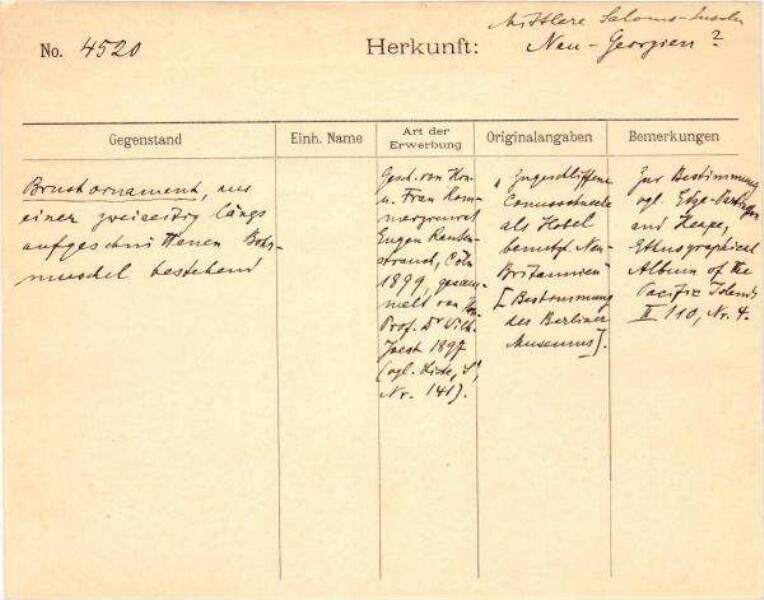 Mittlere Salomo-Inseln
No. 4520 Herkunft: Neu-Georgien?
Gegenstand
Einh. Name
Art der
Erwerbung
Originalangaben
Bemerkungen
Brustornament, aus
einer zweiseitig längs
aufgeschnittenen Bohr-
muschel bestehend
Gesch. von Hrn
u. Frau Kom-
merzienrat
Eugen Rauten-
strauch, Cöln
1899, gesam-
melt von Hrn
Prof. Dr Wilh.
Joest 1897
(vgl. Liste,
Nr. 141).
"Zugeschliffene
Conusschnecke
als Hobel
benutzt. Neu-
Britannien"
[Bestimmung
des Berliner
Museums].
Zur Bestimmung
vgl. Edge-Partington
and Heape,
Ethnographical
Album of the
Pacific Islands
II 110, Nr. 4.